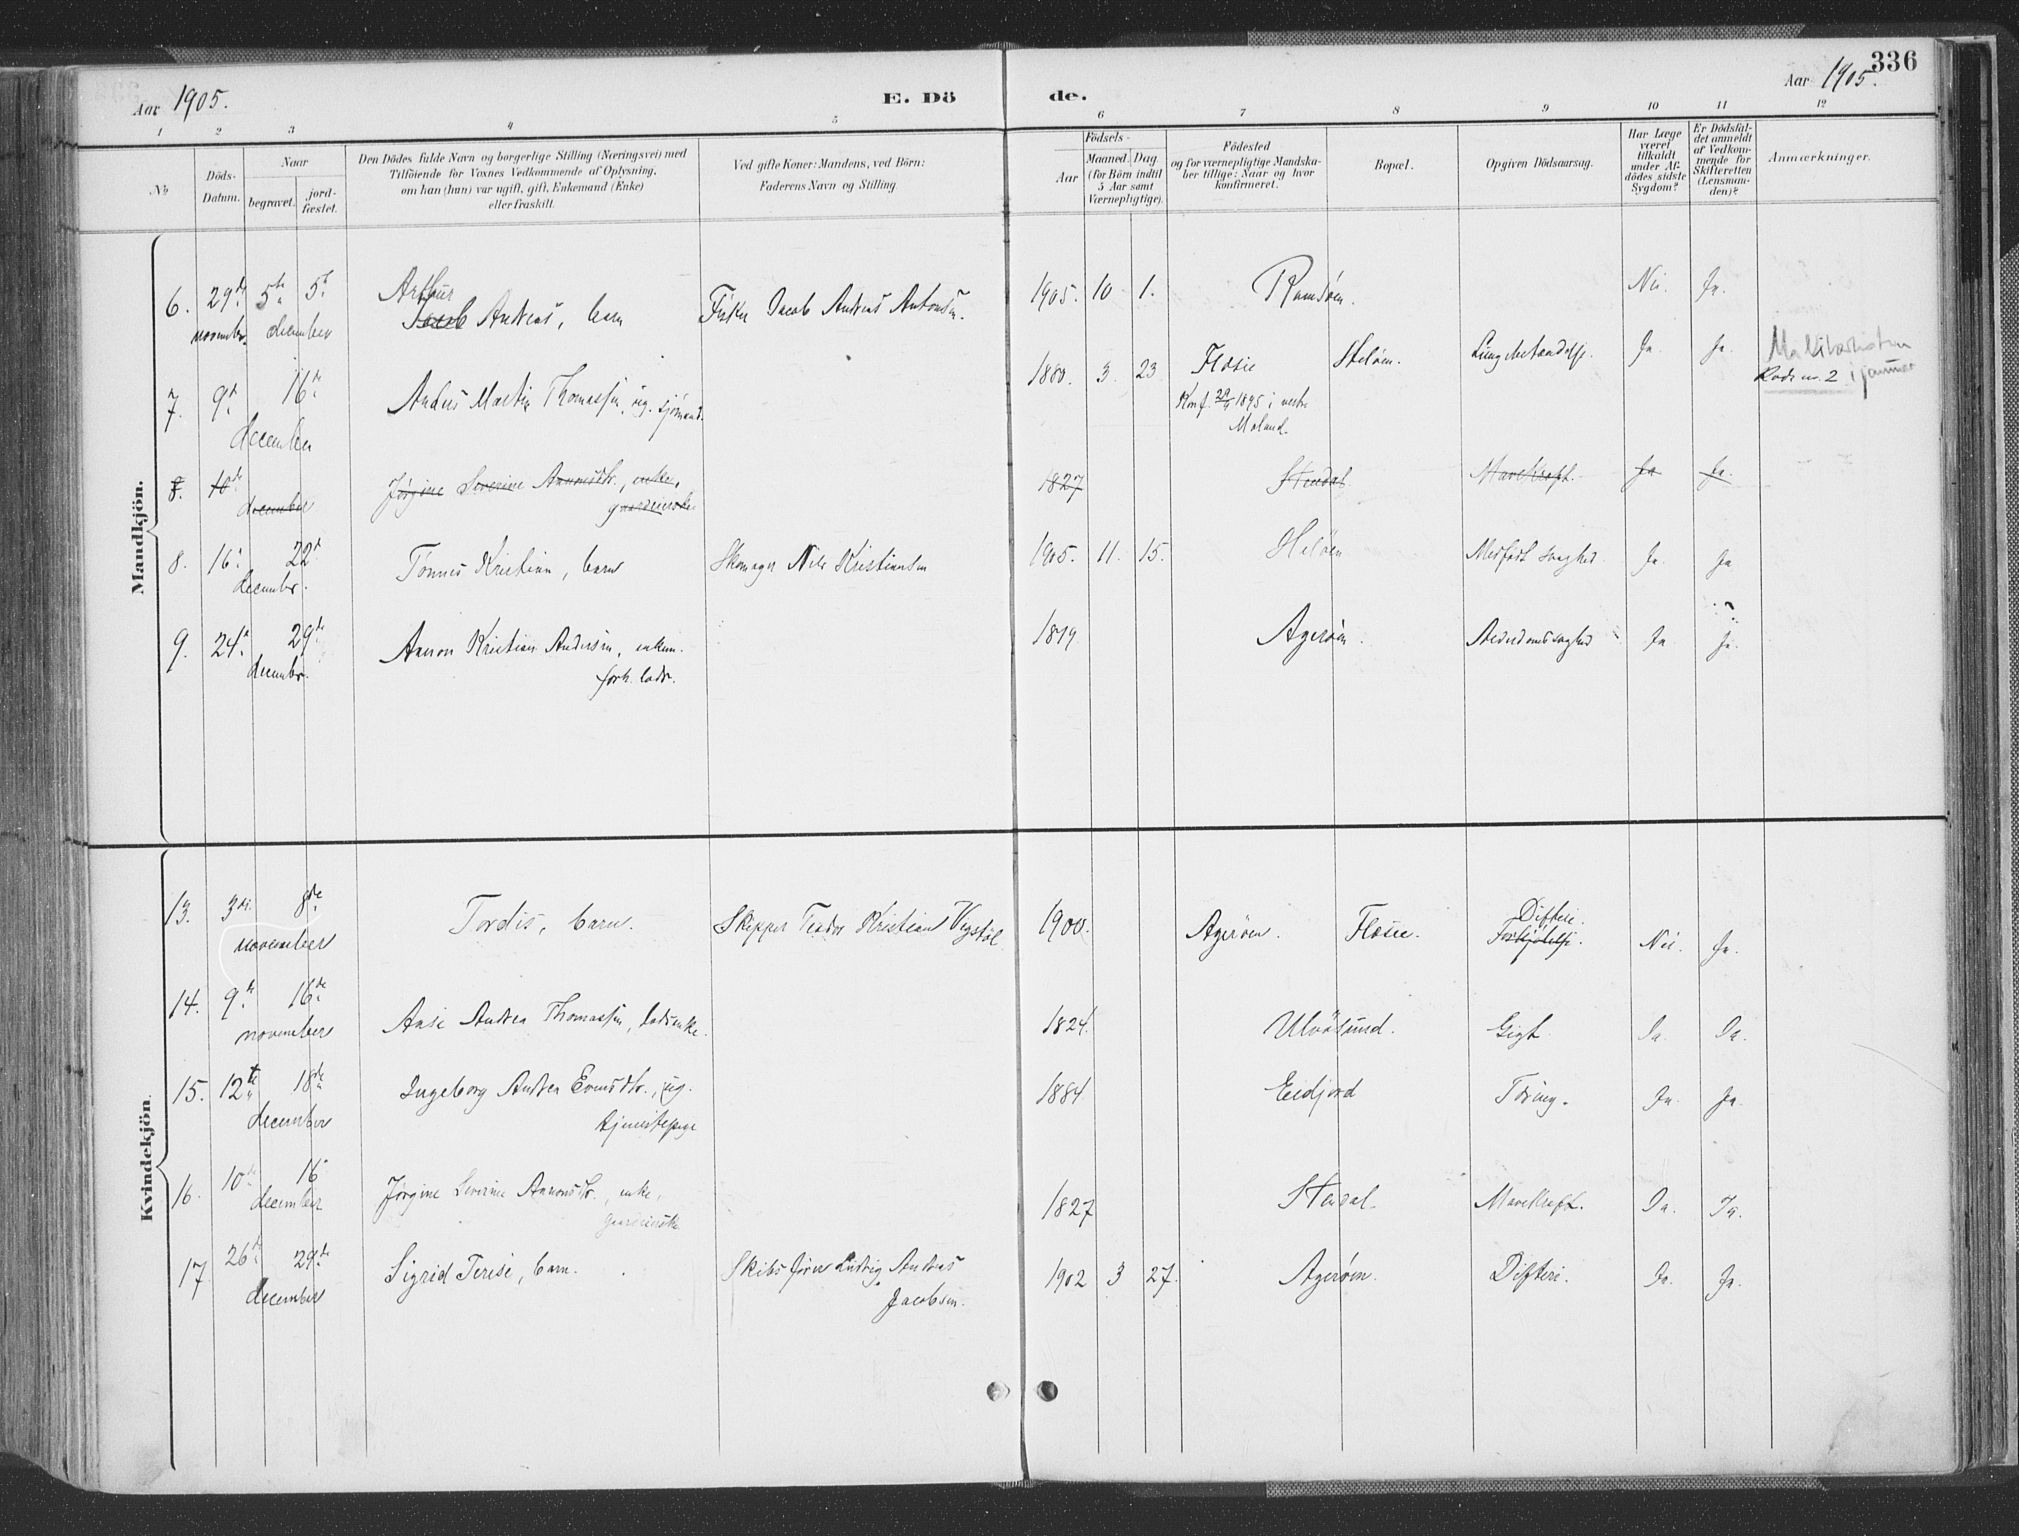 336
Aar 1905.
E. Dö
de.
Aar 1905.
1 2 3 4 5 6 7 8 9 10 11 12
№
Döds-Datum.
Naar
begravet.
jord-fæstet.
Den Dödes fulde Navn og borgerlige Stilling (Næringsvei) med
Tilföiende for Voxnes Vedkommende af Oplysning,
om han (hun) var ugift, gift, Enkemand (Enke)
eller fraskilt.
Ved gifte Koner: Mandens, ved Börn:
Faderens Navn og Stilling.
Födsels-
Aar
Maaned. Dag.
(for Börn indtil
5 Aar samt
Værnepligtige).
Födested
og for værnepligtige Mandska-
ber tillige: Naar og hvor
konfirmeret.
Bopæl.
Opgiven Dödsaarsag.
Har Læge
været
tilkaldt
under Af-
dödes sidste
Sygdom?
Er Dödsfal-
det anmeldt
af Vedkom-
mende for
Skifteretten
(Lensman-
den)?
Anmærkninger.
Mandkjön.
6. 29de november 5te 5te december Arthur Jacob Andreas, barn Fisker Jacob Andreas Antonsen. 1905. 10 1. Ramsöen. Nei. Ja.
7. 9de 16de december Anders Martin Thomassen, ug. sjömand. 1880. 3. 23 Flosie Konf. 29/9 1895 i vestre Moland. Helöen. Lungebetændelse. Ja. Ja. i januar
8. 10de december Jörgine Severine Aanonsdtr., enke, gaardeierske 1827 Stendal Mavekræft. Ja Ja.
8. 16de 22de december. Tönnes Kristian, barn Skomager Nils Kristiansen 1905. 11. 15. Helöen Medfödt svaghed. Ja. Ja
9. 24de 29de december. Aanon Kristian Andersen, enkem. forh. lods. 1819. Ageröen. Alderdomssvaghed Ja. Ja.
Kvindekjön.
13. 3die 8de november Tordis, barn. Skipper Teodor Kristian Vegstöl 1900. Ageröen. Flosie. Difteri. Forkjölelse. Nei. Ja.
14. 9de 16de november Aase Andrea Thomassen, lodsenke. 1824. Ulvösund. Gigt. Ja. Ja.
15. 12te 18de december Ingeborg Andrea Evensdtr., ug. tjenestepige 1884 Eidjord Tæring. Ja. Ja.
16. 10de 16 december Jörgine Severine Aanonsdtr., enke, gaardeierske 1827 Stendal. Mavekræft. Ja. Ja.
17 26de 29de december Sigrid Terese, barn. Skibsförer Ludvig Andreas Jacobsen. 1902 3 27. Ageröen. Difteri. Ja. Ja.